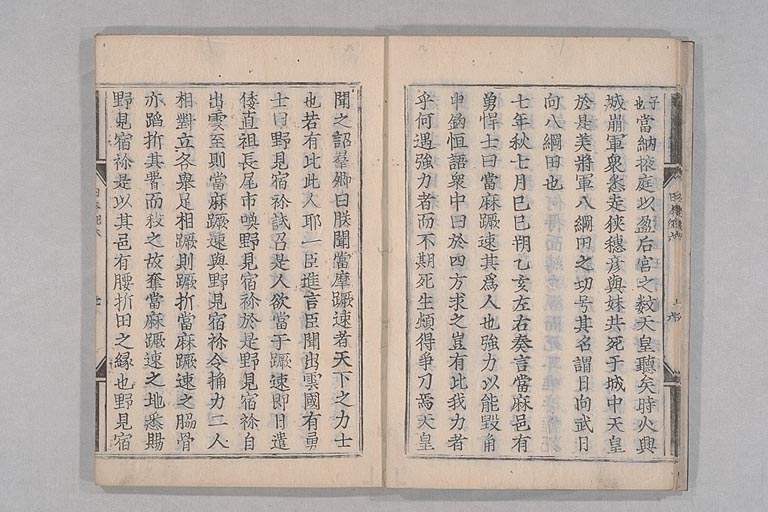 子也當納掖庭以盈后宮之數天皇聽矣時火興
城崩軍衆悉走狹穗彦與妹共死于城中天皇
於是美將軍八綱田之功号其名謂日向武日
向八綱田也
七年秋七月己巳朔乙亥左右奏言當麻邑有
勇悍士曰當麻蹶速其爲人也強力以能毀角
申鉤恒語衆中曰於四方求之豈有比我力者
乎何遇強力者而不期死生頓得爭力焉天皇
聞之詔羣卿曰朕聞當摩蹶速者天下之力士
也若有比此人耶一臣進言臣聞出雲國有勇
士曰野見宿祢試召是人欲當于蹶速即日遣
倭直祖長尾市喚野見宿祢於是野見宿祢自
出雲至則當麻蹶速與野見宿祢令捔力二人
相對立各舉足相蹶則蹶折當麻蹶速之脇骨
亦蹈折其署而殺之故奪當麻蹶速之地悉賜
野見宿祢是以其邑有腰折田之緣也野見宿